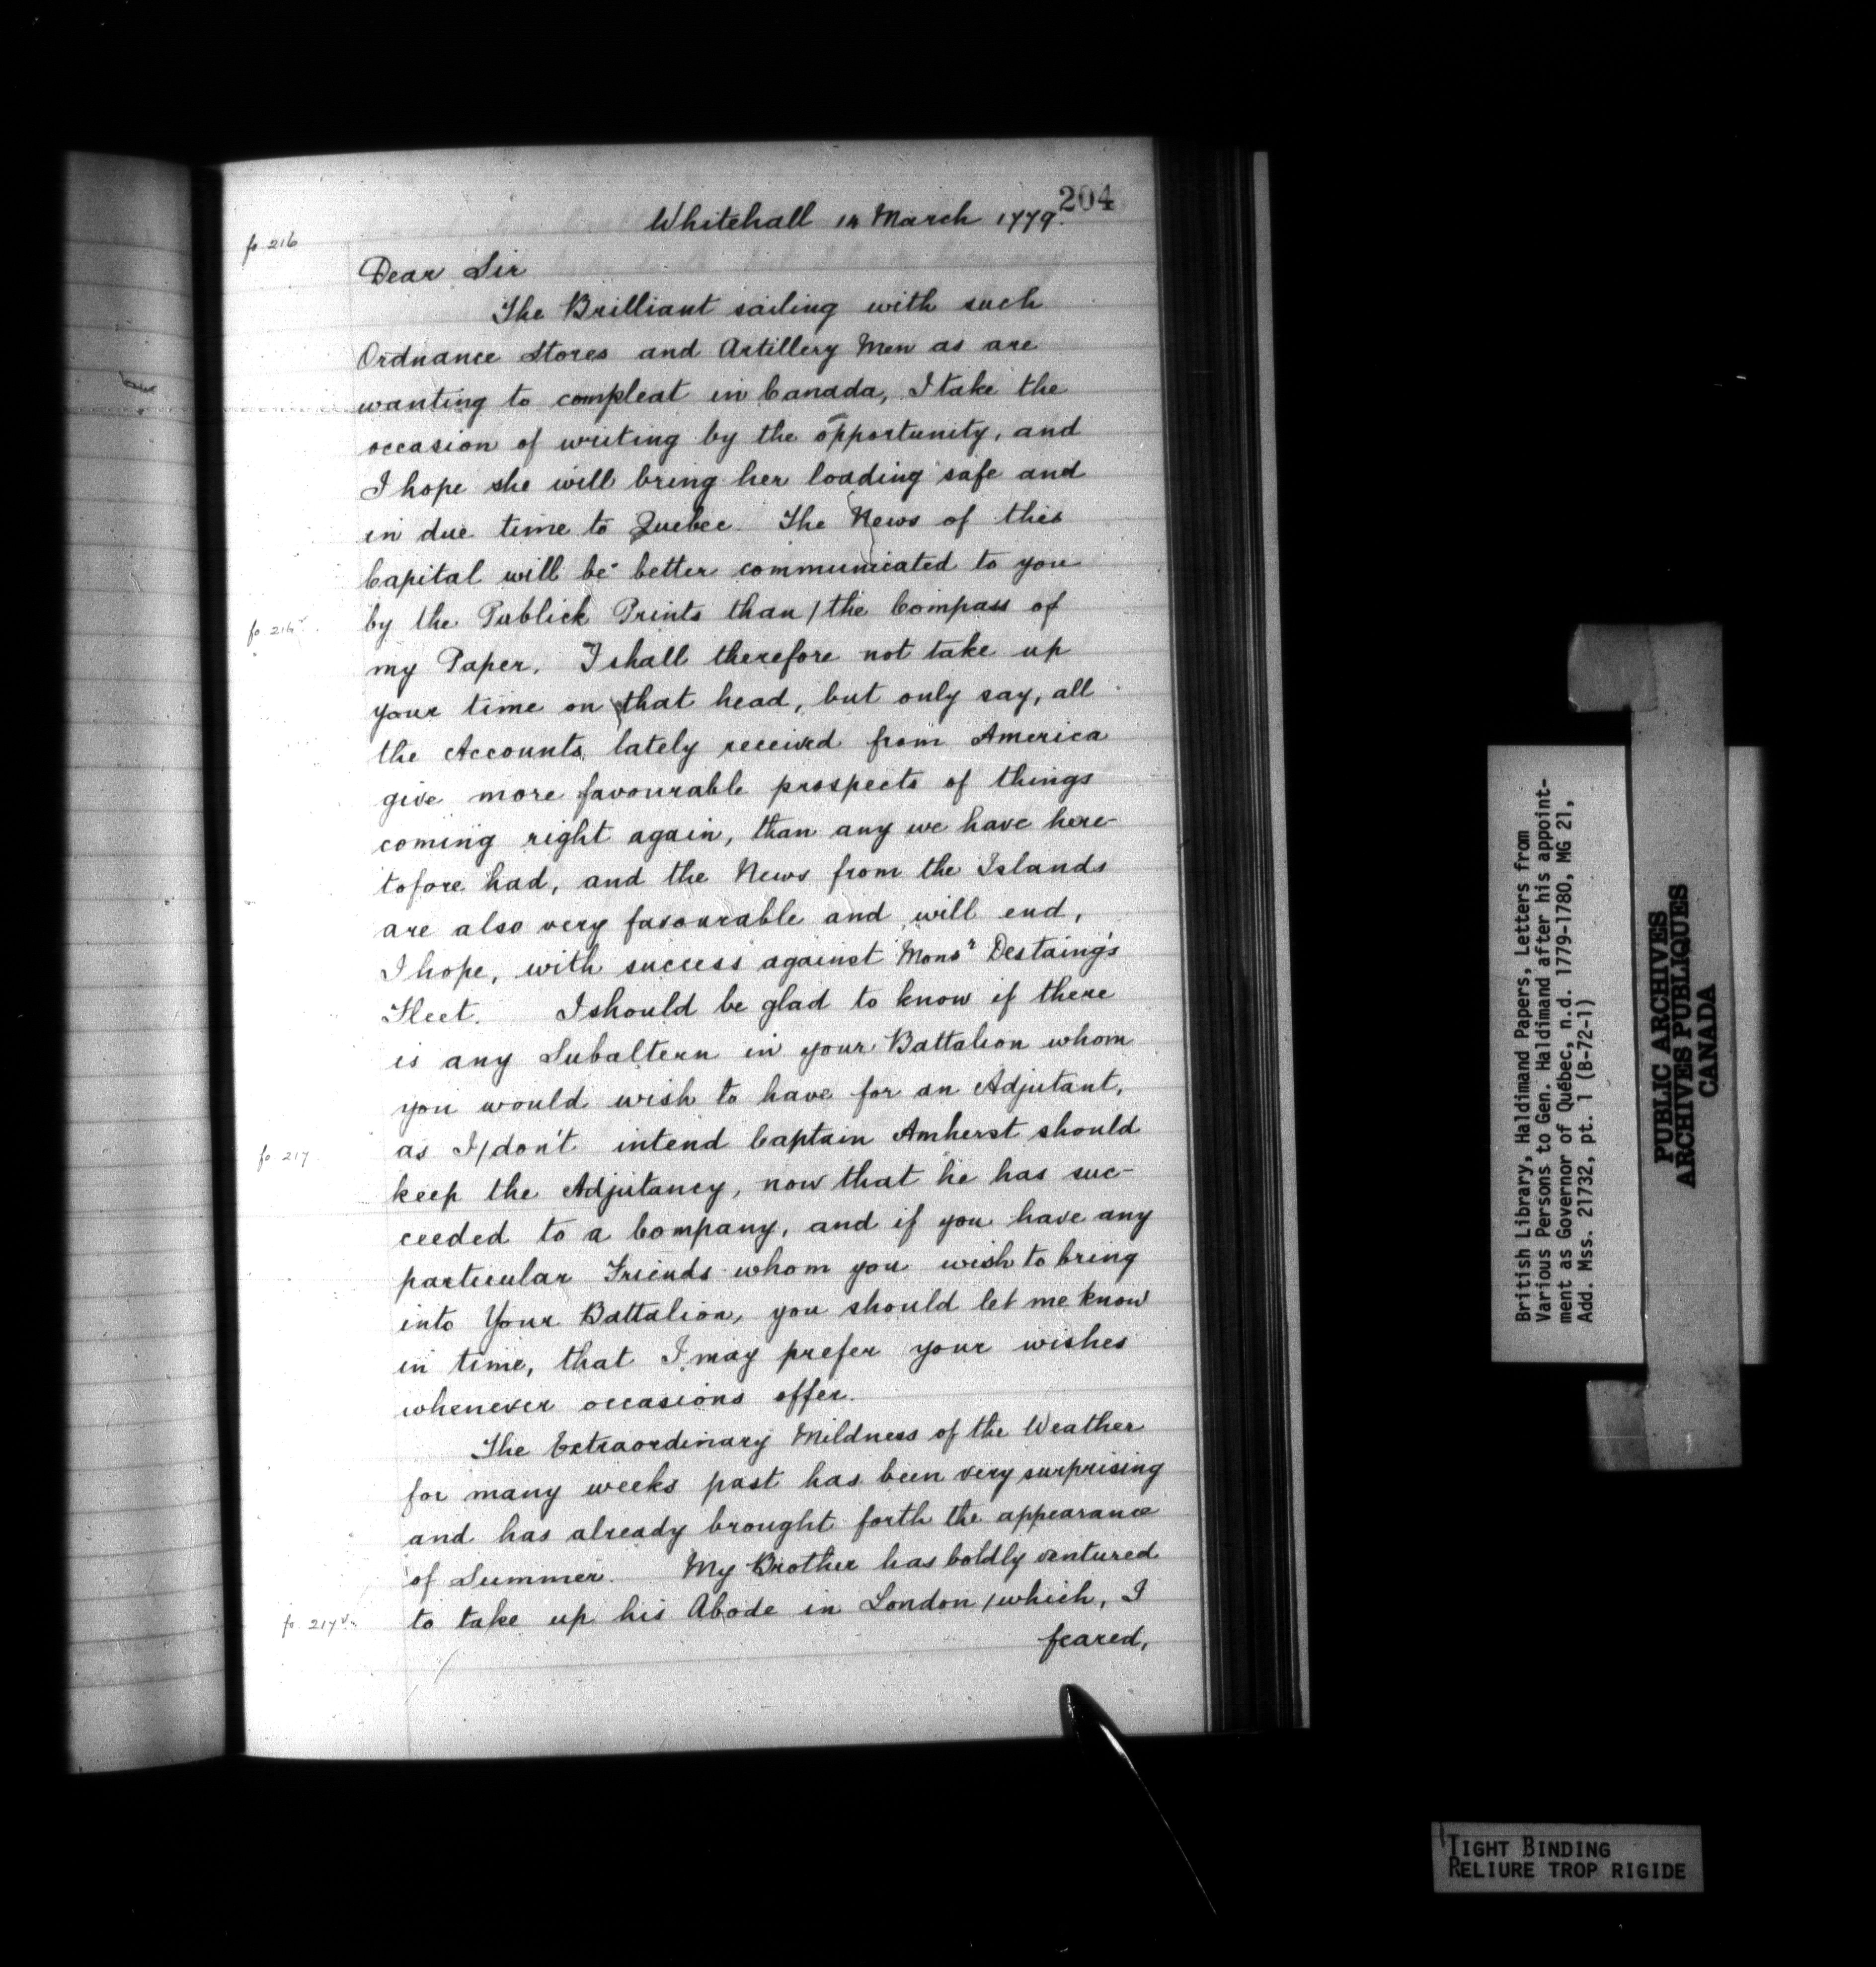 204
Whitehall 14 March 1779.
fo. 216
Dear Sir
The Brilliant sailing with such
Ordnance Stores and Artillery Men as are
wanting to compleat in Canada, I take the
occasion of writing by the opportunity, and
I hope she will bring her loading safe and
in due time to Quebec. The News of this
Capital will be better communicated to you
fo. 216v.
by the Publick Prints than / the Compass of
my Paper. I shall therefore not take up
your time on that head, but only say, all
the Accounts lately received from America
give more favourable prospects of things
coming right again, than any we have here-
tofore had, and the News from the Islands
are also very favourable and will end,
I hope, with success against Monsr Destaing's
Fleet. I should be glad to know if there
is any Subaltern in your Battalion whom
you would wish to have for an Adjutant,
fo. 217
as I / don't intend Captain Amherst should
keep the Adjutancy, now that he has suc-
ceeded to a Company, and if you have any
particular Friends whom you wish to bring
into Your Battalion, you should let me know
in time, that I may prefer your wishes
whenever occasions offer.
The Extraordinary Mildness of the Weather
for many weeks past has been very surprising
and has already brought forth the appearance
of Summer. My Brother has boldly ventured
fo. 217v.
to take up his Abode in London / which, I
feared,
British Library, Haldimand Papers, Letters from
Various Persons to Gen. Haldimand after his appoint-
ment as Governor of Québec, n.d. 1779-1780, MG 21,
Add. Mss. 21732, pt. 1 (B-72-1)
PUBLIC ARCHIVES
ARCHIVES PUBLIQUES
CANADA
TIGHT BINDING
RELIURE TROP RIGIDE